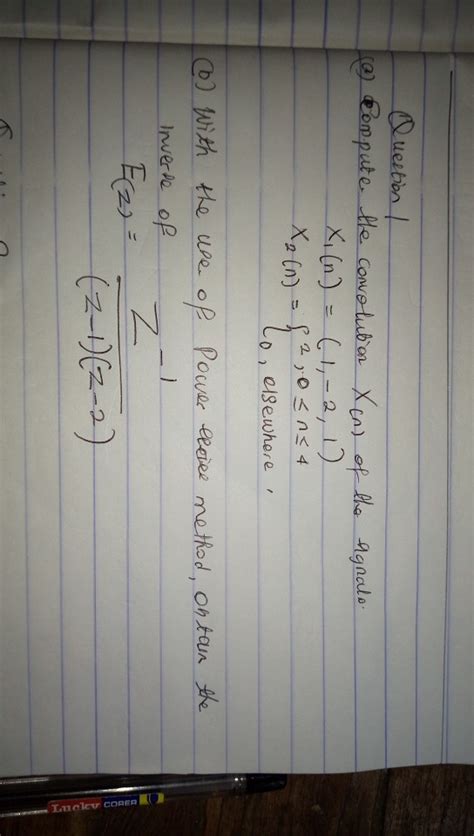 Question 1
(a) Compute the convolution X(n) of the signals.
X₁(n) = (1, -2, 1)
X₂(n) = { 2, 0 ≤ n ≤ 4
0, elsewhere,
(b) With the use of Power series method, obtain the
inverse of
E(z) = z - 1
(z-1)(z-2)
Lucky CORER